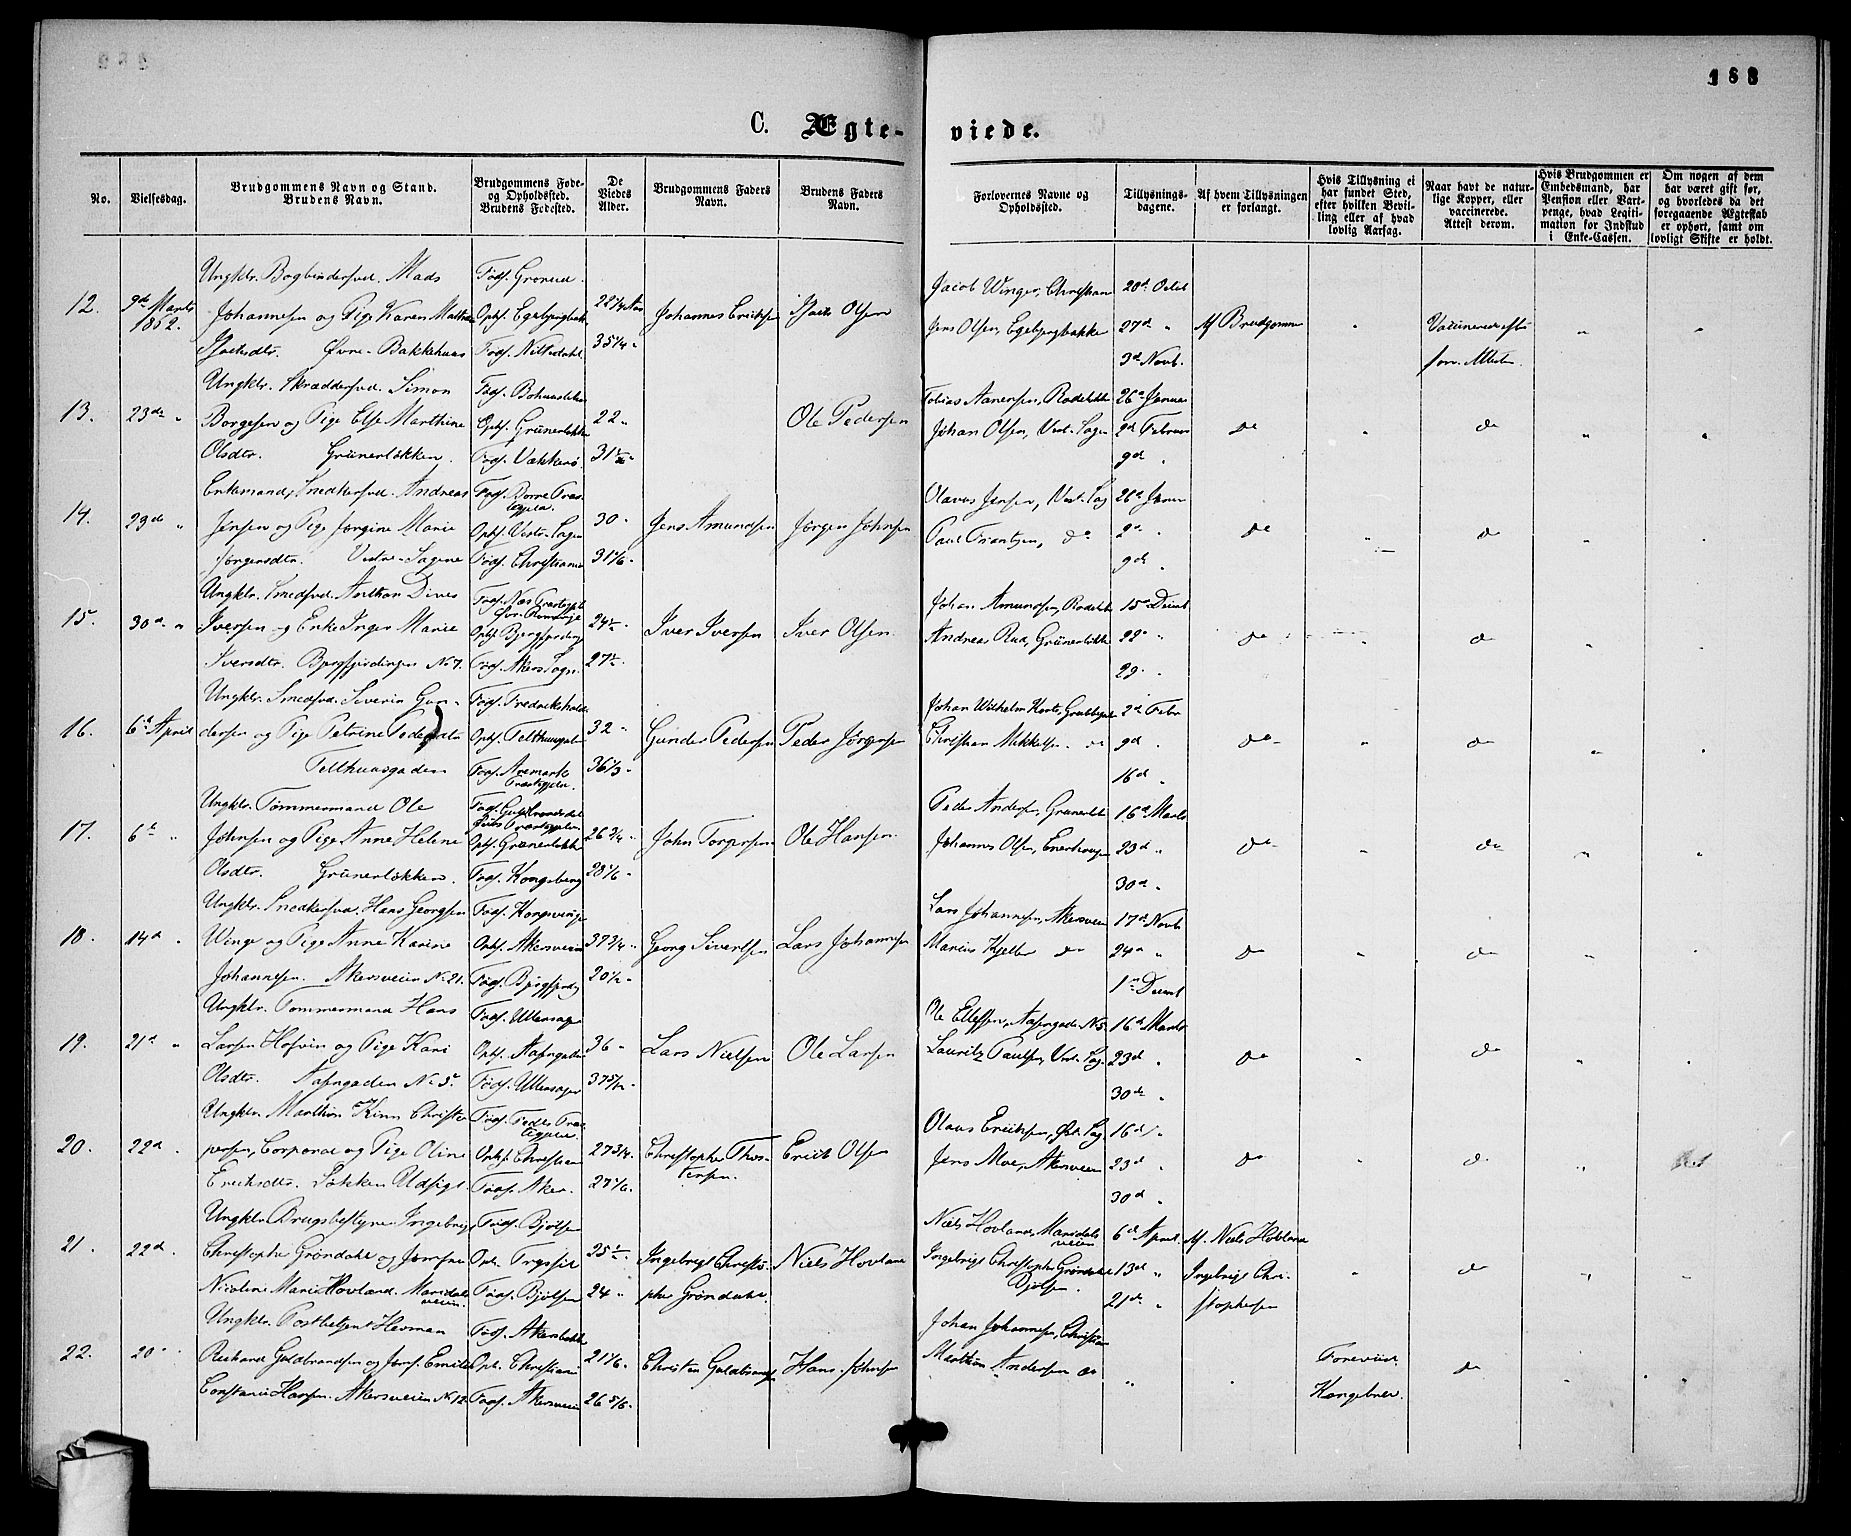 188
C. Ægte-viede.
No.
Vielsesdag.
Brudgommens Navn og Stand.
Brudens Navn.
Brudgommens Føde-
og Opholdssted.
Brudens Fødested.
De
Viedes
Alder.
Brudgommens Faders
Navn.
Brudens Faders
Navn.
Forlovernes Navne og
Opholdssted.
Tillysnings-
dagene.
Af hvem Tillysningen
er forlangt.
Hvis Tillysning ei
har fundet Sted,
efter hvilken Bevil-
ling eller af hvad
lovlig Aarsag.
Naar havt de natur-
lige Kopper, eller
vaccinerede.
Attest derom.
Hvis Brudgommen er
Embedsmand, har
Pension eller Vart-
penge, hvad Legiti-
mation for Indskud
i Enke-Cassen.
Om nogen af dem
har været gift før,
og hvorledes da det
foregaaende Ægteskab
er ophørt, samt om
lovligt Skifte er holdt.
12. 9de Marts 1862.
Ungklr. Bogbindersvd. Mads
Johannesen og Pige Karen Mathea
Øvre-Bakkehaus
Fødf. Grorud
Oph. Egebjergbak
Fødf. Nittedahl
22 1/4 Aar
35 1/4 "
Johannes Ericksen
Olsen
Jacob Winger, Christiania
Jens Olsen, Egebjergbakke
20de Octob
27de "
3de Novb.
Af Brudgommen
Vaccinerede efter
forev. Attester
13. 23de "
Ungklr. Skræddersvd. Simon
Borgesen og Pige Else Marthine
Olsdtr. Grünerløkken.
Fødf. Bohuuslehn
Oph. Grünerløkken
Fødf. Vækkerø
22 "
Ole Pedersen
Tobias Aanensen, Rodeløkke
Johan Olsen, Vest. Sagen
26de Januar
2de Februar
9de "
do
do
14. 23de "
Enkemand, Snedkersvd. Andreas
Jensen og Pige Jørgine Marie
Jørgensdtr. Vestre-Sagene
Fødf. Borre Præstegjeld.
Oph. Vestre-Sagen
Fødf. Christiania
30 "
31 1/6 "
Jens Amundsen
Jørgen Johnsen
Olaves Jensen, Vest. Sag
Paul Frantzen, do
26de Januar
2de "
9de "
do
do
15. 30de "
Ungklr. Smedsvd. Anthon Dines
Iversen og Enke Inger Marie
Iversdtr. Bjergfjerdingen No 7.
Fødf. Næs Præstegjeld
Øvr. Romerige
Oph. Bjergfjerding
Fødf. Akers Sogn
24 1/2 "
27 1/2 "
Iver Iversen
Iver Olsen
Johan Amundsen, Rodeløk
Andreas Rud, Grünerløkke
15de Decemb
22de "
29. "
do
do
16. 6te April
Ungklr. Smedsvd. Severin Gun-
dersen og Pige Petrine Pedersdtr
Telthuusgaden
Fødf. Fredrikshald
Oph. Telthuusgaden
Fødf. Aremark
Præstegjeld.
32 "
36 1/3 "
Gunder Pedersen
Peder Jørgensen
Johan Wilhelm Korte, Grubbegade
Christian Mikkelsen do
2de Febr
9de "
16de "
do
do
17. 6te "
Ungklr. Tømmermand Ole
Johnsen og Pige Anne Helene
Olsdtr. Grünerløkken.
Fødf. Gulbrandsdal
Oph. Grünerløkke
Fødf. Kongsberg
26 3/4 "
28 1/6 "
John Torgersen
Ole Hansen
Peder Andersen, Grünerløk
Johannes Olsen, Enerhaugen
16de Marts
23de "
30de "
do
do
18. 14de "
Ungklr. Snedkersvd. Hans Georgsen
Winge og Pige Anne Karine
Johannesen. Akersveien No 21.
Fødf. Kongsvinger
Oph. Akersveien
Fødf. Bjergfjerdg
37 3/4 "
20 1/2 "
Georg Sivertsen
Lars Johannesen
Lars Johannesen, Akersveien
Marius Kjeller do
17de Novb
24de "
1ste Decemb
do
do
19. 21de "
Ungklr. Tømmermand Hans
Larsen Hofvin og Pige Kari
Olsdtr. Aasengaden No 5.
Fødf. Ullensager
Oph. Aasengaden
Fødf. Ullensager
36 "
37 5/12 "
Lars Nielsen
Ole Larsen
Ole Ellefsen, Aasengade No 5
Lauritz Paulsen, Vest. Sag.
16de Marts
23de "
30de "
do
do
20. 22de "
Ungklr. Marthin Kinn Christo-
phersen, Corporal og Pige Oline
Ericksdtr. Løkken Udsigt
Oph. Christiania
Fødf. Aker.
27 3/4 "
27 1/6 "
Christopher Thor-
stensen.
Erick Olsen
Olaus Ericksen, Øst. Sag
Jens Moe, Akersveien
16de "
23de "
30de "
do
do
21. 22de "
Ungklr. Brugsbestyrer Ingebrigt
Christopher Grøndahl og Jomfrue
Nicoline Marie Hovland, Maridals-
veien.
Fødf. Bjølsen
Oph. Trysil
Fødf. Bjølsen
25 1/2 "
24 "
Ingebrigt Christo-
pher Grøndahl.
Niels Hovland
Niels Hovland, Maridals-
veien
Ingebrigt Christopher Grøndahl
Bjølsen.
6te April
13de "
21de "
Af Niels Hovland
Ingebrigt Chri-
stophersen
do
22. 20 "
Ungklr. Postbetjent Herman
Richard Guldbrandsen og Jomf. Emilie
Constance Hansen. Akersveien No 12.
Fødf. Akersbakke
Oph. Christiania
Fødf. Akersveien
21 1/6 "
26 5/6 "
Christen Guldbrandsen
Hans Johnsen
Johan Johannesen, Christian
Marthin Andersen do
Foreviist
Kongebrev.
do